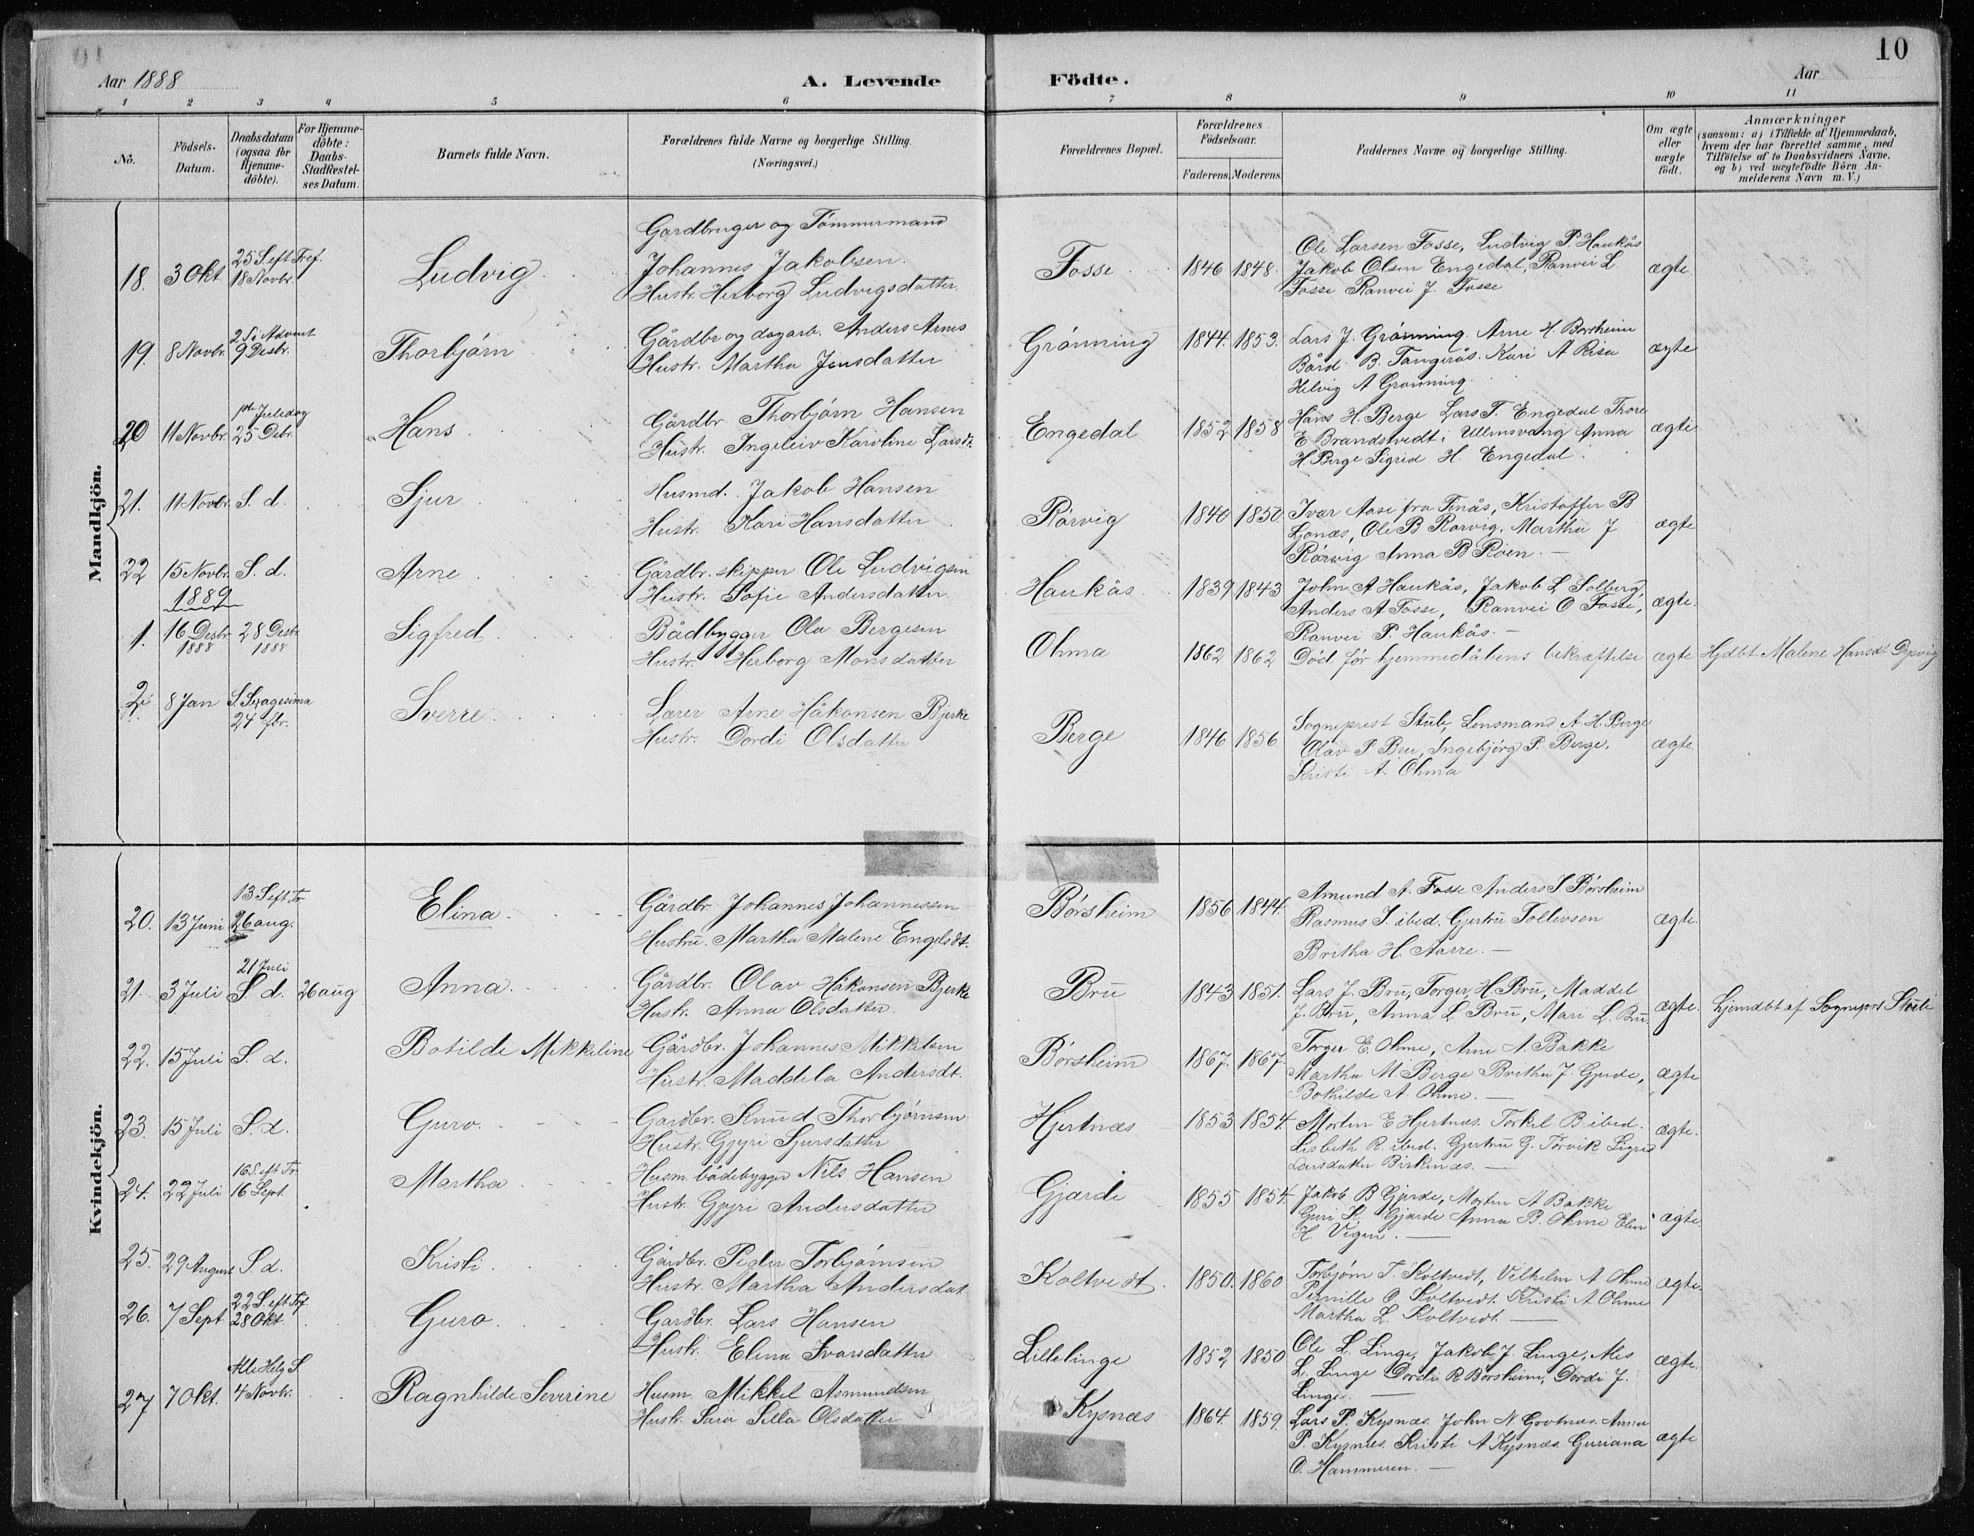 Aar 1888
A. Levende
Födte.
Aar
10
1 2 3 4 5 6 7 8 9 10 11
No.
Födsels-
Datum.
Daabsdatum
(ogsaa for
Hjemme-
döbte).
For Hjemme-
döbte:
Daabs-
Stadfæstel-
ses Datum.
Barnets fulde Navn.
Forældrenes fulde Navne og borgerlige Stilling.
(Næringsvei.)
Forældrenes Bopæl.
Forældrenes
Födselsaar.
Faderens. Moderens.
Faddernes Navne og borgerlige Stilling.
Om ægte
eller
uægte
födt.
Anmærkninger
(saasom: a) i Tilfælde af Hjemmedaab,
hvem der har forrettet samme, med
Tilföielse af to Daabsvidners Navne,
og b) ved uægtefödte Börn An-
melderens Navn m. V.)
Mandkjön.
18. 3 Okt 25 S eft Tref. 18 Novbr. Ludvig
Gardbruger og Tømmermand
Johannes Jakobsen.
Hustr. Herborg Ludvigsdatter
Fosse 1846 1848.
Ole Larsen Fosse, Ludvig P. Haukås
Jakob Olsen Engedal, Ranvei L.
Fosse Ranvei J. Fosse
ægte.
19. 8 Novbr. 2 S i Advent 9 Desbr. Thorbjørn
Gårdbr og dagarb. Anders Arnes
Hustr. Martha Jensdatter
Grønning 1844. 1853.
Lars J. Grønning. Arne H. Borsheim
Bård B. Tangerås. Kari A Risa
Helvig A Grønning.
ægte
20 11 Novbr. 1ste Juledag 25 Debr. Hans
Gårdbr. Thorbjørn Hansen
Hustr. Ingeleiv Karoline Larsdt.
Engedal 1852 1858
Hans H. Berge Lars T. Engedal Thore
E Brandstvedt i Ullensvang Anna
H. Berge Sigrid H. Engedal.
ægte
21. 11 Novbr. S. d. Sjur
Husmd. Jakob Hansen
Hustr. Kari Hansdatter
Rørvig 1840 1850
Ivar Aase fra Finås, Kristoffer B
Ljonæs, Ole B Rørvig. Martha J
Rørvig Anna B Røen. —
ægte
22 15 Novbr. S. d. Arne
Gårdbr. skipper Ole Ludvigsen
Hustr. Sofie Andersdatter
Haukås 1839 1843
John A Haukås, Jakob L Solberg,
Anders A Fosse, Ranvei O Fosse,
Ranvei P. Haukås. —
ægte.
1889
1. 16 Desbr. 1888 28 Desbr. 1888 Sigfred
Bådbygger Ola Bergesen
Hustr. Herborg Monsdatter
Ohma 1862 1862
Død før hjemmedåbens bekræftelse
ægte Hjdbt. Malene Hansdt Dysvig
2. 8 Jan S. Sexagesima 24 fbr. Sverre
Lærer Arne Håkonsen Bjerke
Hustr. Dordi Olsdatter
Berge 1846 1856
Sogneprest Stub, Lensmand A H. Berge
Olav P Bru, Ingebjørg P. Berge.
Kristi A. Ohma
ægte.
Kvindekjön.
20. 13 Juni 13 S eft Tr. 26 aug. Elina
Gårdbr. Johannes Johannessen
Hustru. Martha Malene Engelsdt.
Børsheim 1856 1844.
Amund A. Fosse Anders S Børsheim
Rasmus I. ibed. Gjertru Tollevsen
Britha H. Aarre. —
ægte.
21. 3 Juli 21 Juli S d. 26 aug Anna
Gårdbr. Olav Håkonsen Bjerke
Hustr. Anna Olsdatter.
Bru 1843 1851.
Lars J. Bru, Torger H. Bru, Maddel
J. Bru, Anna L Bru, Mari L. Bru
ægte. hjemdbt af Sogneprst Stub
22. 15 Juli S. d. Botilde Mikkeline
Gårdbr. Johannes Mikkelsen
Hustr. Maddela Andersdt.
Børsheim 1867. 1867
Torger E. Ohma, Arne A. Bakke
Martha M Berge Britha J. Gjerde,
Bothilde A Ohma. —
ægte
23. 15 Juli S. d. Guro
Gardbr. Knud Thorbjørnsen
Hustr. Gjyri Sjursdatter
Hjertnæs 1853 1854
Morten E Hjertnæs. Torkel B ibed.
Lisbeth R. ibed. Gjertru G. Tørvik Sigrid
Larsdatter Birkenæs. —
ægte.
24. 22 Juli 16 S eft Tr 16 Sept. Martha
Husm. bådebygger Nils Hansen
Hustr. Gjyri Andersdatter
Gjærde 1855 1854.
Jakob B Gjerde, Morten A Bakke
Guri K. Gjærde Anna B. Ohma Elen
H Vigen. —
ægte.
25. 29 August S. d. Kristi
Gårdbr. Peder Torbjørnsen
Hustr. Martha Andersdat
Koltvedt. 1850. 1860
Torbjørn T. Koltvedt, Vilhelm A Ohma
Pernille O. Koltvedt. Kristi A Ohma
Martha L. Koltvedt. —
ægte.
26. 7 Sept 22 S. eft Tref. 28 Okt. Guro
Gardbr. Lars Hansen
Hustr. Elena Ivarsdatter
Lillelinge 1852 1850
Ole L. Linge, Jakob J. Linge, Nils
L. Linge Dordi R Børsheim, Dordi J.
Linge. —
ægte.
27 7 Okt. Alle Helg S. 4 Novbr. Ragnhilde Severine
Husm. Mikkel Asmundsen
Hustr. Sara Silla Olsdatter
Kysnæs 1864. 1859.
Lars P. Kysnæs. John N Govtnæs. Anna
P. Kysnæs. Kristi A Kysnæs. Guriana
O. Hammeren. —
ægte